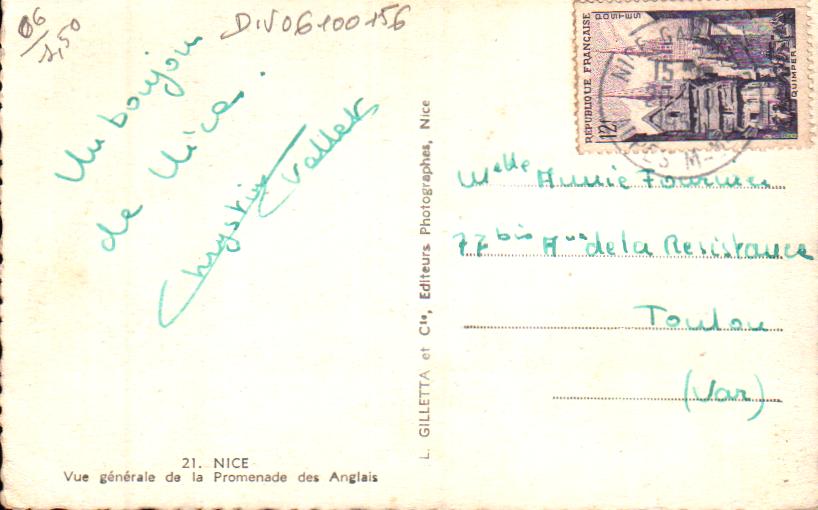 06
1,50
DIV06100156
Un bonjour
de Nice.
Chrystine Vallet
21. NICE
Vue générale de la Promenade des Anglais
L. GILLETTA et Cie, Editeurs Photographes, Nice
RÉPUBLIQUE FRANÇAISE
POSTES
12F
QUIMPER
NICE
15
MES M-MES
Melle Annie Fournier
77 bis Aue de la Resistance
Toulon
(Var)